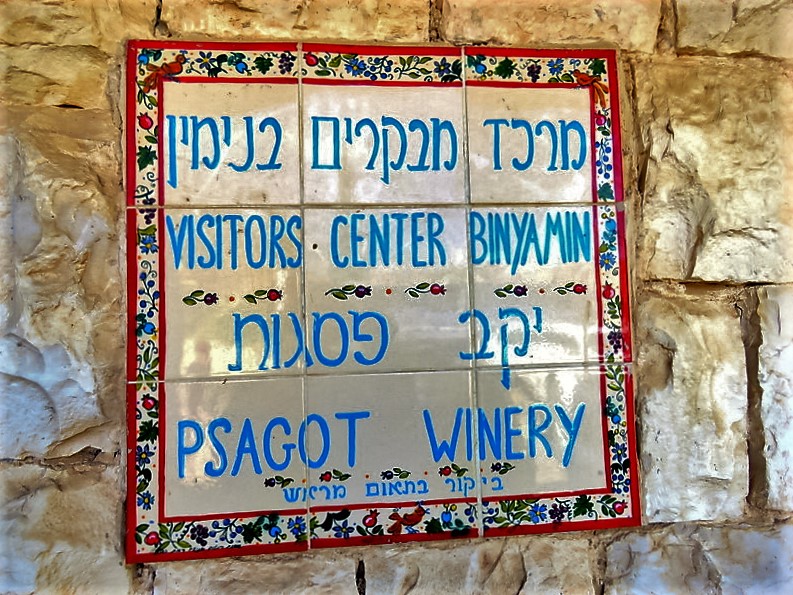 מרכז מבקרים בנימין
VISITORS CENTER BINYAMIN
יקב פסגות
PSAGOT WINERY
ביקור בתאום מראש